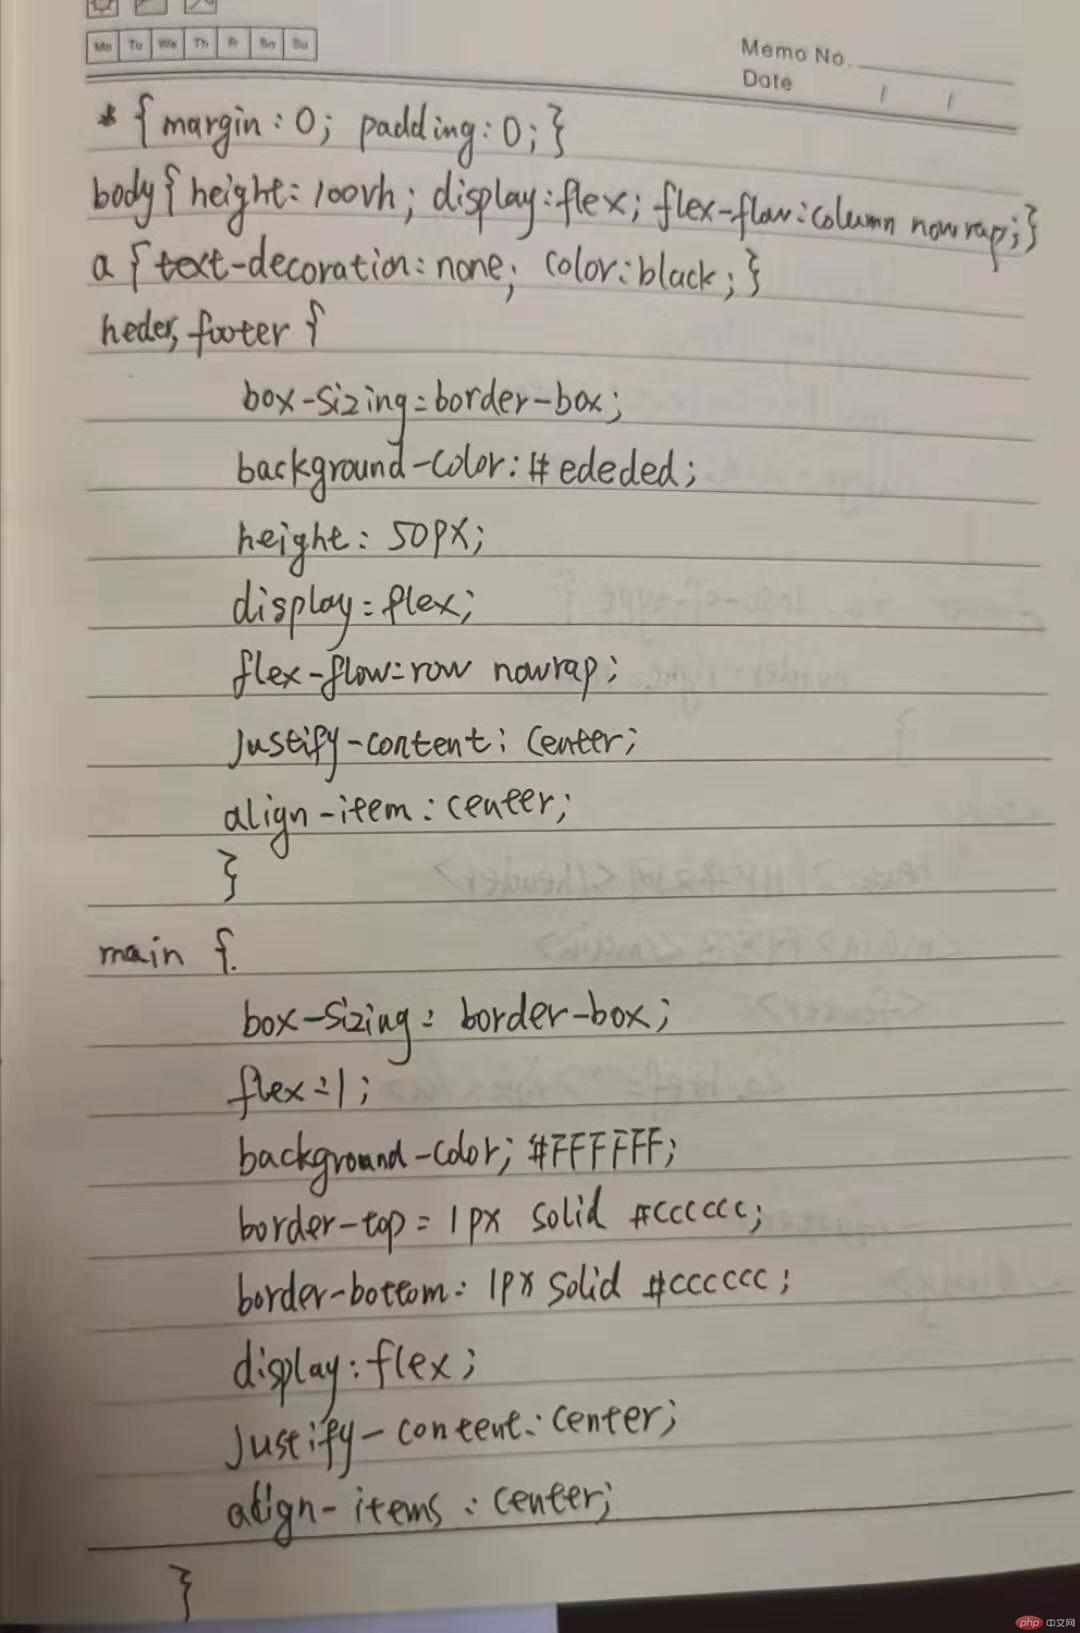 Mo Tu We Th Fr Sa Su
Memo No.
Date / /
* { margin: 0; padding: 0; }
body { height: 100vh; display: flex; flex-flow: column nowrap; }
a { text-decoration: none; color: black; }
heder, footer {
box-sizing: border-box;
background-color: #ededed;
height: 50px;
display: flex;
flex-flow: row nowrap;
justify-content: center;
align-item: center;
}
main {
box-sizing: border-box;
flex: 1;
background-color; #FFFFFF;
border-top: 1px solid #cccccc;
border-bottom: 1px solid #cccccc;
display: flex;
justify-content: center;
align-items: center;
}
php 中文网